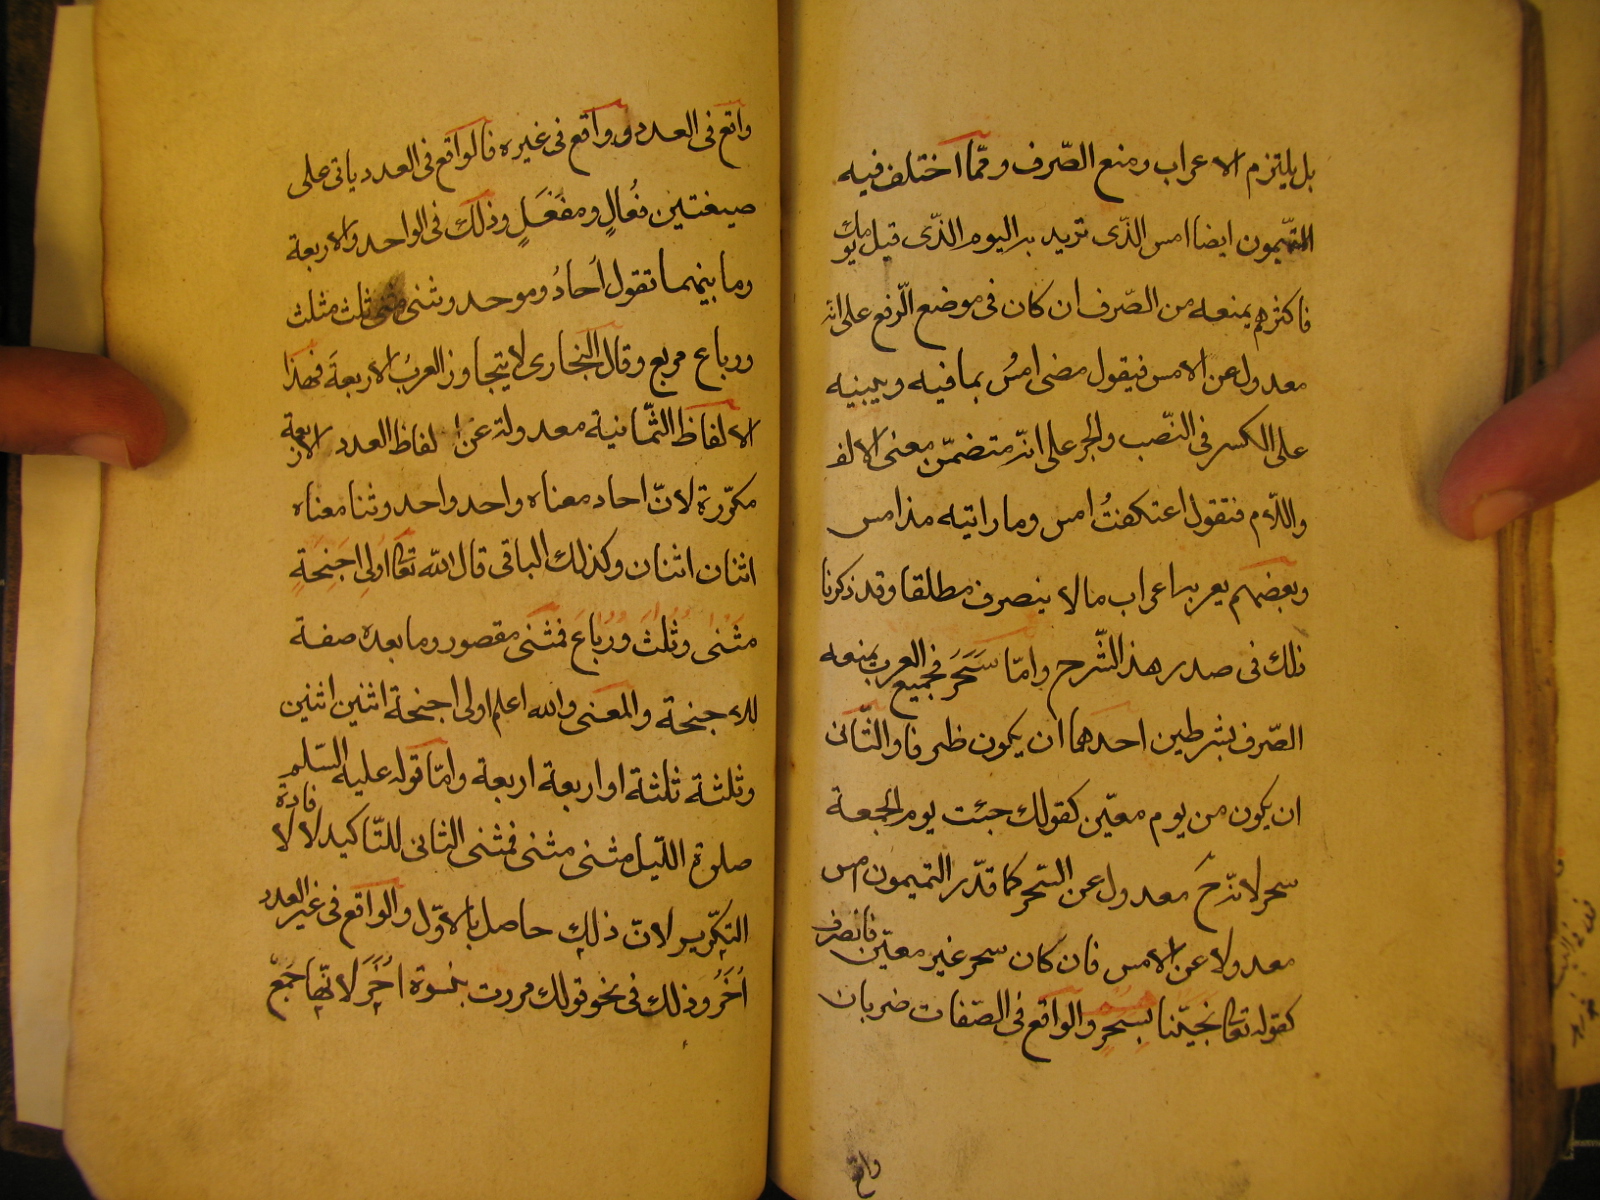 بل يلتزم الاعراب ومنع الصّرف وممّا اختلف فيه
التّميمون ايضا امس الذّى تريد به اليوم الذّى قبل يومك
فاكثرهم يمنعه من الصّرف ان كان فى موضع الّرفع على انّه
معدول عن الامس فيقول مضى امسُ بما فيه ويبنيه
على الكسر فى النّصب والجر على انّه متضمّن معنى الالف
واللّام فتقول اعتكفتُ امس وما رايته مذ امس
وبعضهم يعربه اعراب ما لا ينصرف مطلقا وقد ذكرنا
ذلك فى صدر هذا الشّرح وامّا سَحَرَ فجميع العرب يمنعه
الصّرف بشرطين احدهما ان يكون ظرفا والثّانى
ان يكون من يوم معيّن كقولك جئت يوم الجمعة
سحر لانّه ح معدول عن السّحر كما قدّر التميمون امس
معدولا عن الامس فان كان سحر غير معيّن فانصرف
كقوله تعا نجيّنا بِسحَرٍ والواقع فى الصّفات ضربان
واقع
واقع فى العدد وواقع فى غيره فالواقع فى العدد ياتى على
صيغتين فُعالٍ ومفعَلٍ وذلك فى الواحد والاربعة
وما بينهما تقول اُحادُ وموحد وثنى مثنى ثلث مثلث
ورباع مربع وقال البخارى لا يتجاوز العربُ الاربعةَ فهذا
الالفاظ الثّمانية معدولة عن الفاظ العدد الاربعة
مكرّرة لانّ احاد معناه واحد واحد وثنا معناه
اثنان اثنان وكذلك الباقى قال اللّه تعا اولِى اجنِحَةٍ
مثنى وثُلثَ ورُباعَ فمثنى مقصور وما بعده صفة
للاجنحة والمعنى واللّه اعلم اولى اجنحة اثنين اثنين
وثلثة ثلثة او اربعة اربعة وامّا قوله عليه السّلم
صلوة اللّيل مثنى مثنى فمثنى الثانى للتّاكيد لا لافادة
التكّرير لانّ ذلك حاصل بالاوّل والواقع فى غير العدد
اُخَرُ وذلك فى نحو قولك مررت بنسوة اُخَرَ لانّها جمعُ